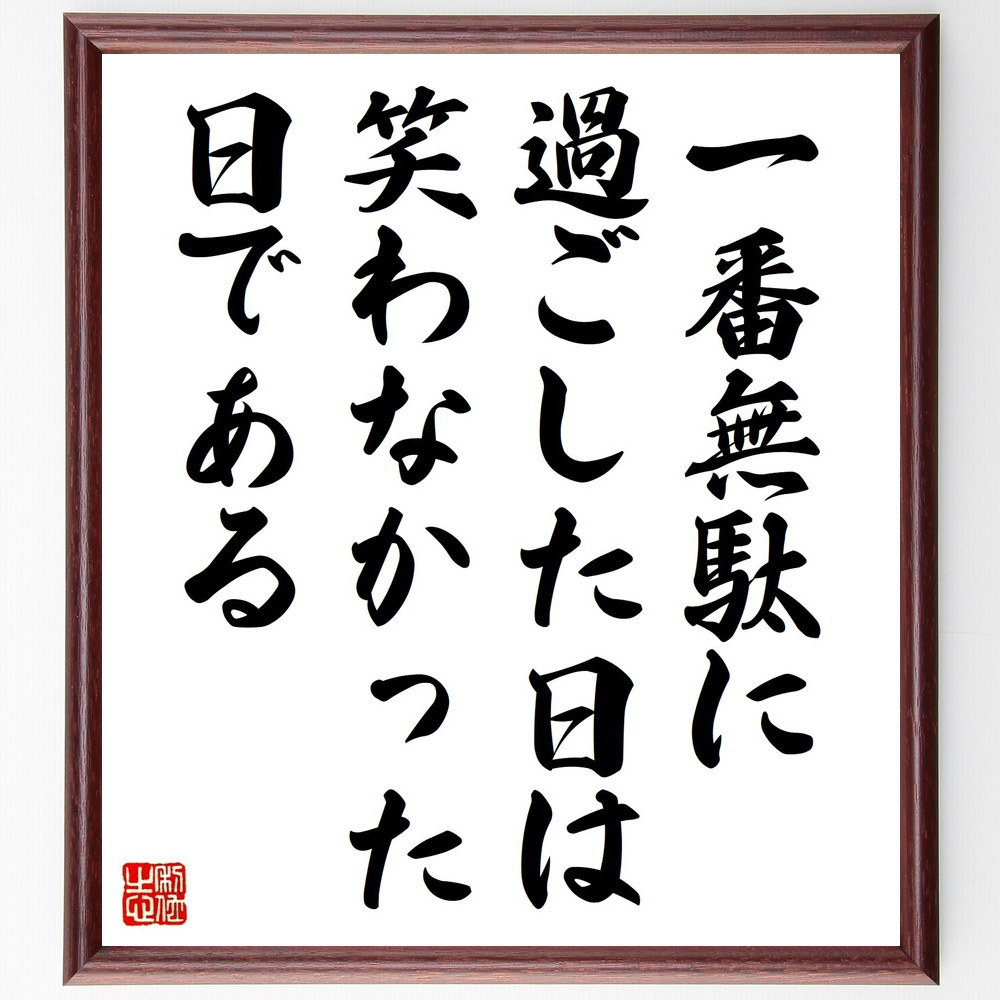 一番無駄に
過ごした日は
笑わなかった
日である